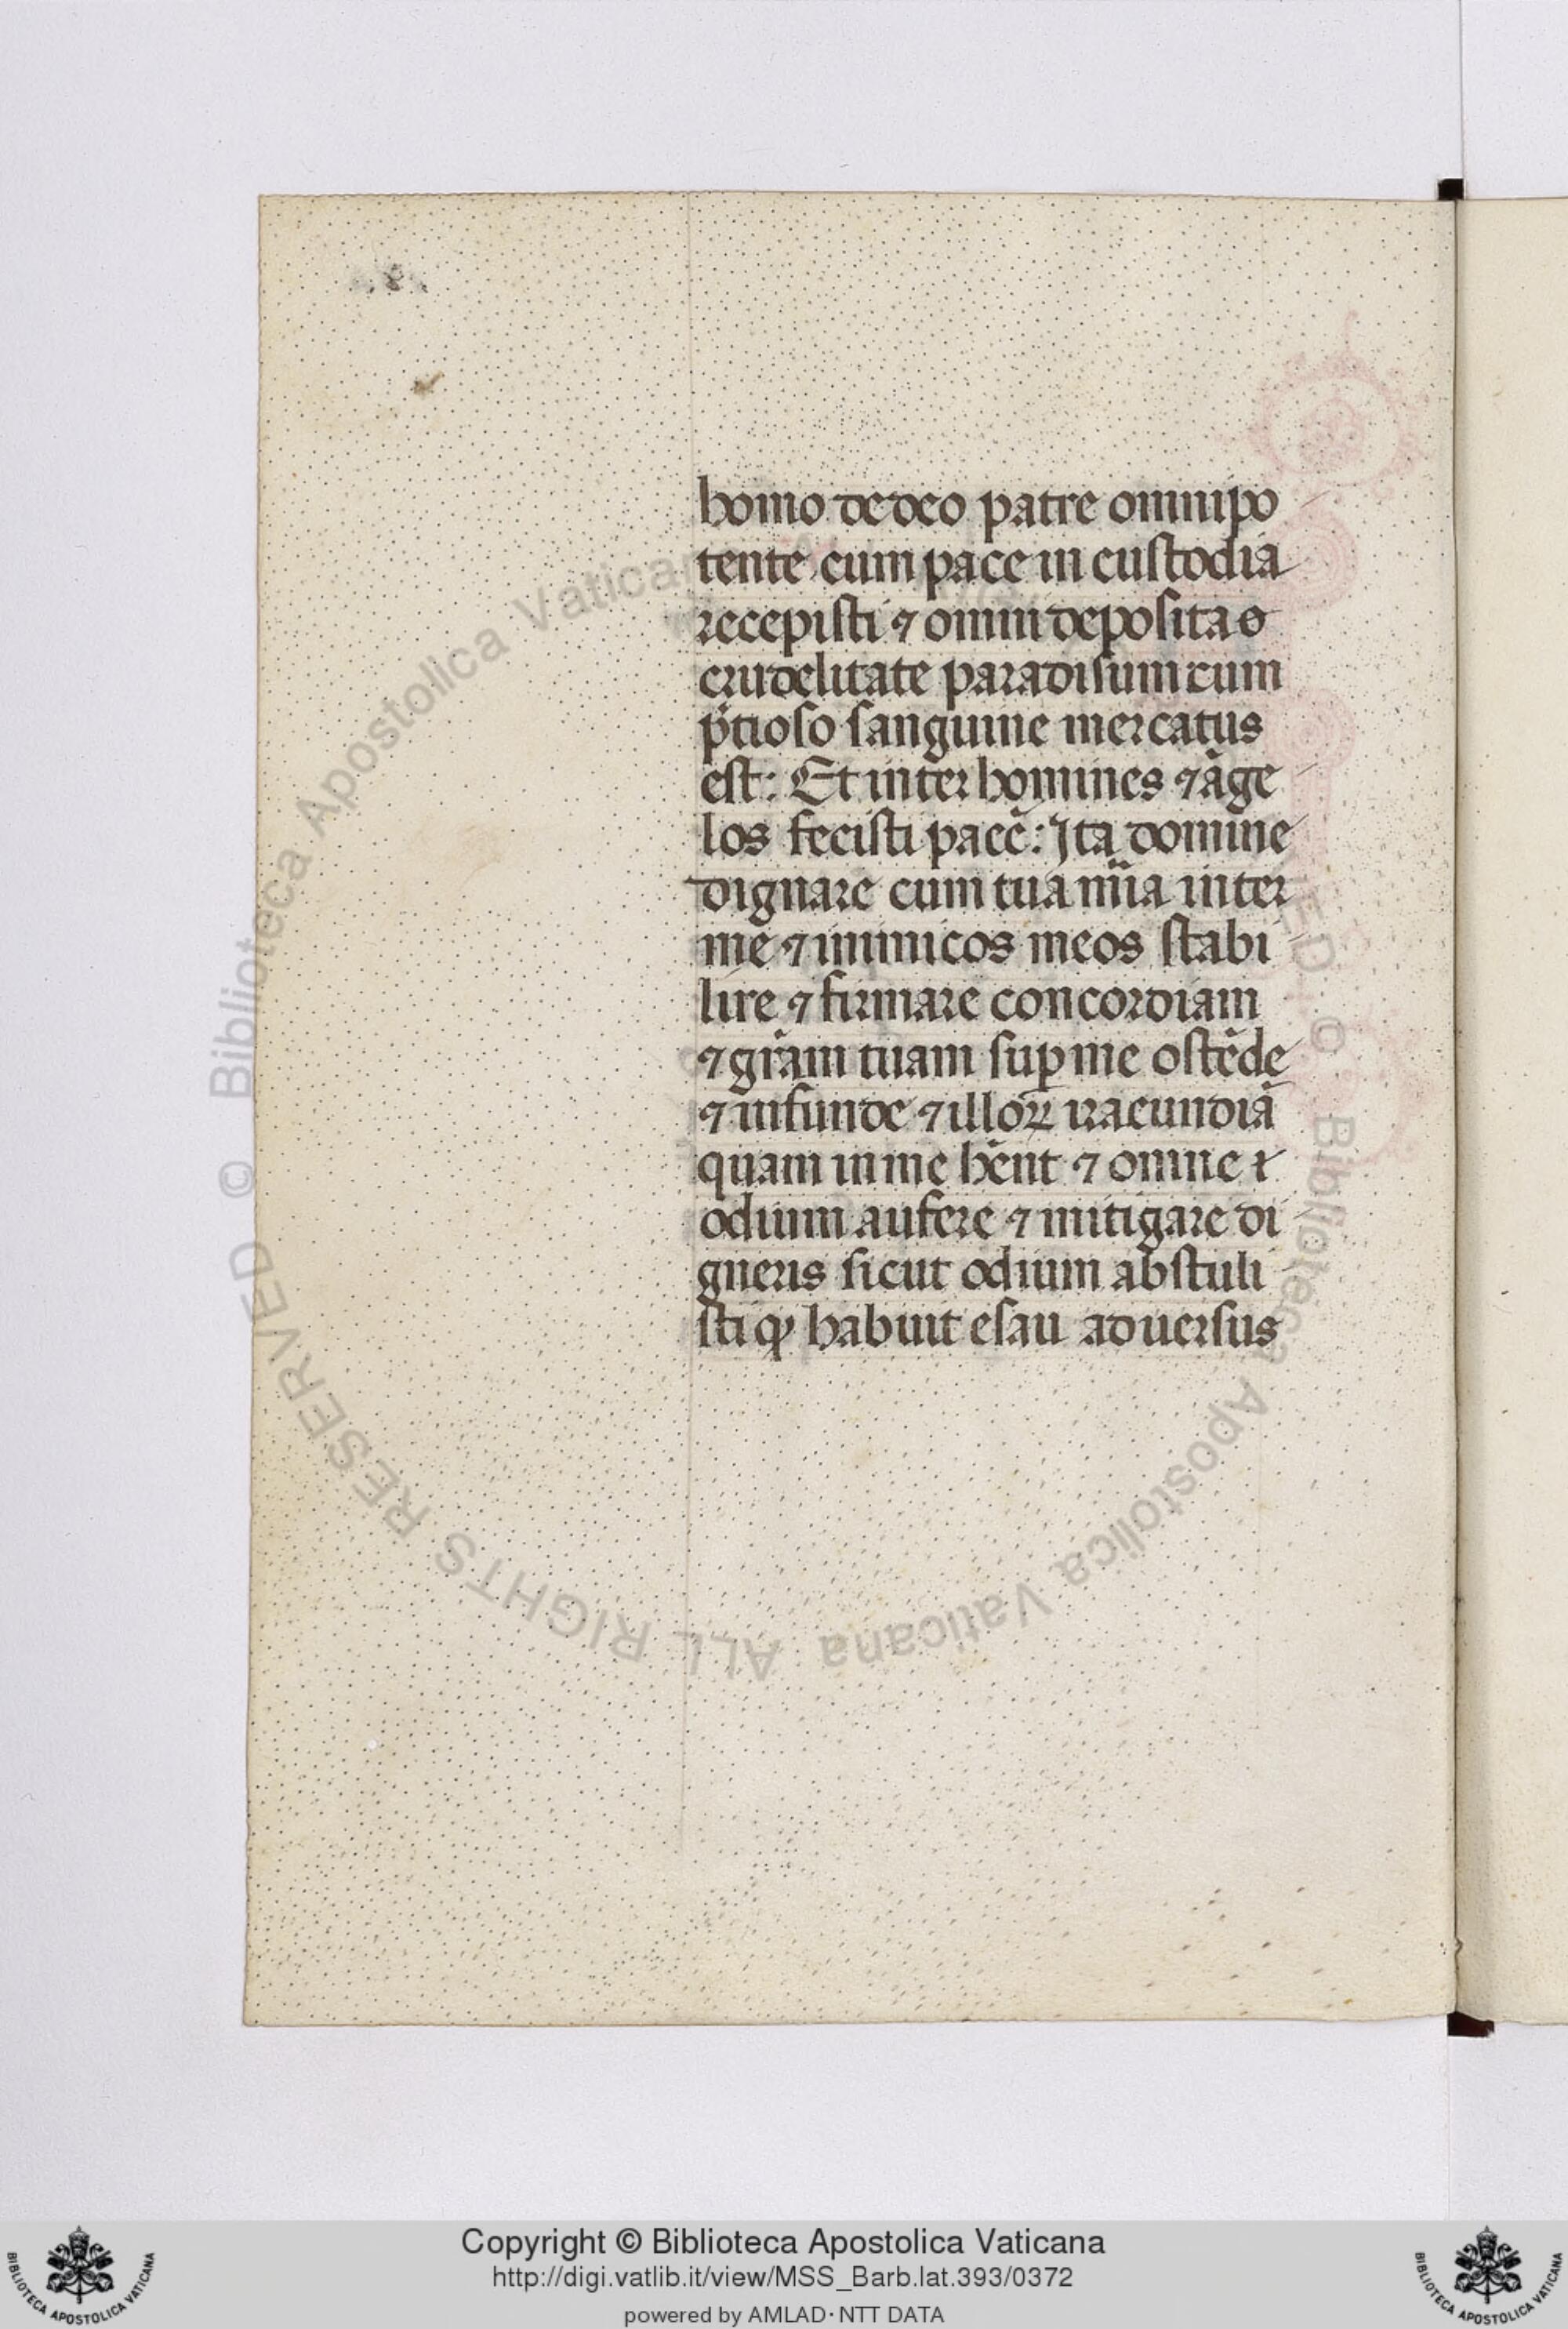 homo de deo patre omnipo
tente cum pace in custodia
recepisti ⁊ omni deposita o
crudelitate paradisum cum
p̃tioso sanguine mercatus
est: Et inter homines ⁊ ãge
los fecisti pacẽ: Ita domine
dignare cum tua mĩa inter
me ⁊ inimicos meos stabi
lire ⁊ firmare concordiam
⁊ gr̃am tuam suꝑ me ostẽde
⁊ infunde ⁊ illoꝝ iracundiã
quam in me hẽnt ⁊ omne
odium aufere ⁊ mitigare di
gneris sicut odium abstuli
sti ꝙ habuit esau aduersus
© Biblioteca Apostolica Vaticana
Biblioteca Apostolica Vaticana ALL RIGHTS RESERVED
Copyright © Biblioteca Apostolica Vaticana
http://digi.vatlib.it/view/MSS_Barb.lat.393/0372
powered by AMLAD·NTT DATA
BIBLIOTECA APOSTOLICA VATICANA
BIBLIOTECA APOSTOLICA VATICANA